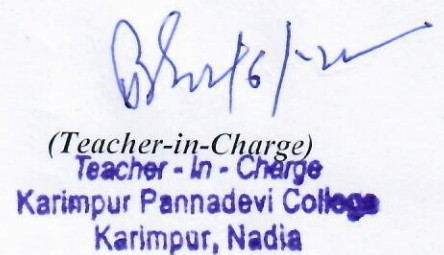 (Teacher-in-Charge)
Teacher - In - Charge
Karimpur Pannadevi College
Karimpur, Nadia